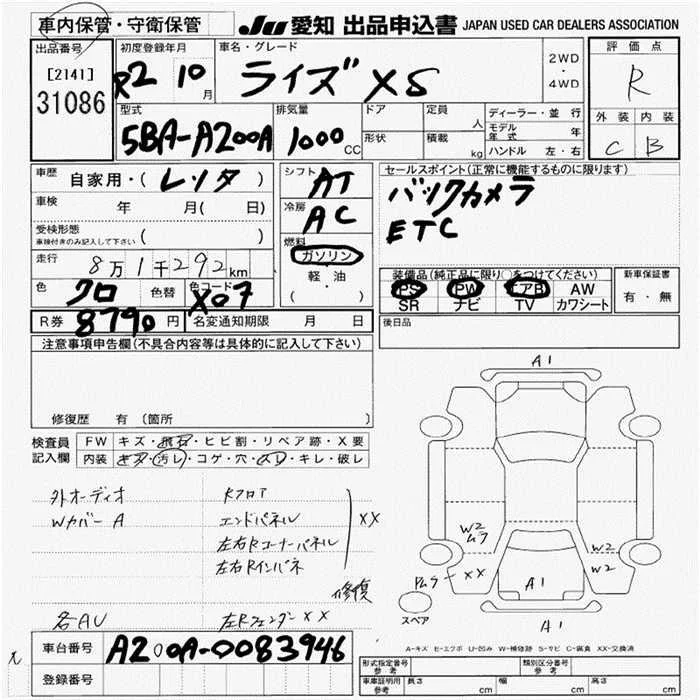 車内保管・守衛保管
JU 愛知 出品申込書 JAPAN USED CAR DEALERS ASSOCIATION
出品番号
[2141]
31086
初度登録年月
R2 10 月
車名・グレード
ライズ XS
2WD
・
4WD
評価点
R
外装 内装
C B
型式
5BA-A200A
排気量
1000 CC
ドア
形状
定員 人
積載 kg
ディーラー・並行
モデル年式 年
ハンドル 左・右
車歴 自家用・( レンタ )
車検 年 月( 日)
受検形態 ( )
車検付きのみ記入して下さい
走行 8万1千292km
色 クロ 色替 色コード X07
シフト AT
冷房 AC
燃料
ガソリン
軽・油
( )
セールスポイント(正常に機能するものに限ります)
バックカメラ
ETC
装備品(純正品に限り○をつけてください)
PS PW エアB AW
SR ナビ TV カワシート
新車保証書
有・無
R券 8790 円 名変通知期限 月 日
後日品
注意事項申告欄(不具合内容等は具体的に記入して下さい)
修復歴 有 (箇所
検査員記入欄
FW キズ・飛石・ヒビ割・リペア跡・X要
内装 キズ・汚レ・コゲ・穴・スレ・キレ・破レ
外オーディオ
Wカバー A
各AU
Rフロア
エンドパネル
左右Rコーナーパネル
左右Rインパネ
XX
修復
左Rフェンダー XX
A1
W2
ムラ
W2
W2
XX
A1
A1
スペア
A-キズ E-エクボ U-凹み W-補修跡 S-サビ C-腐食 XX-交換済
車台番号 A200A-0083946
登録番号
形式指定番号
参考
類別区分番号
参考
車庫証明用
参考
長さ cm 幅 cm 高さ cm